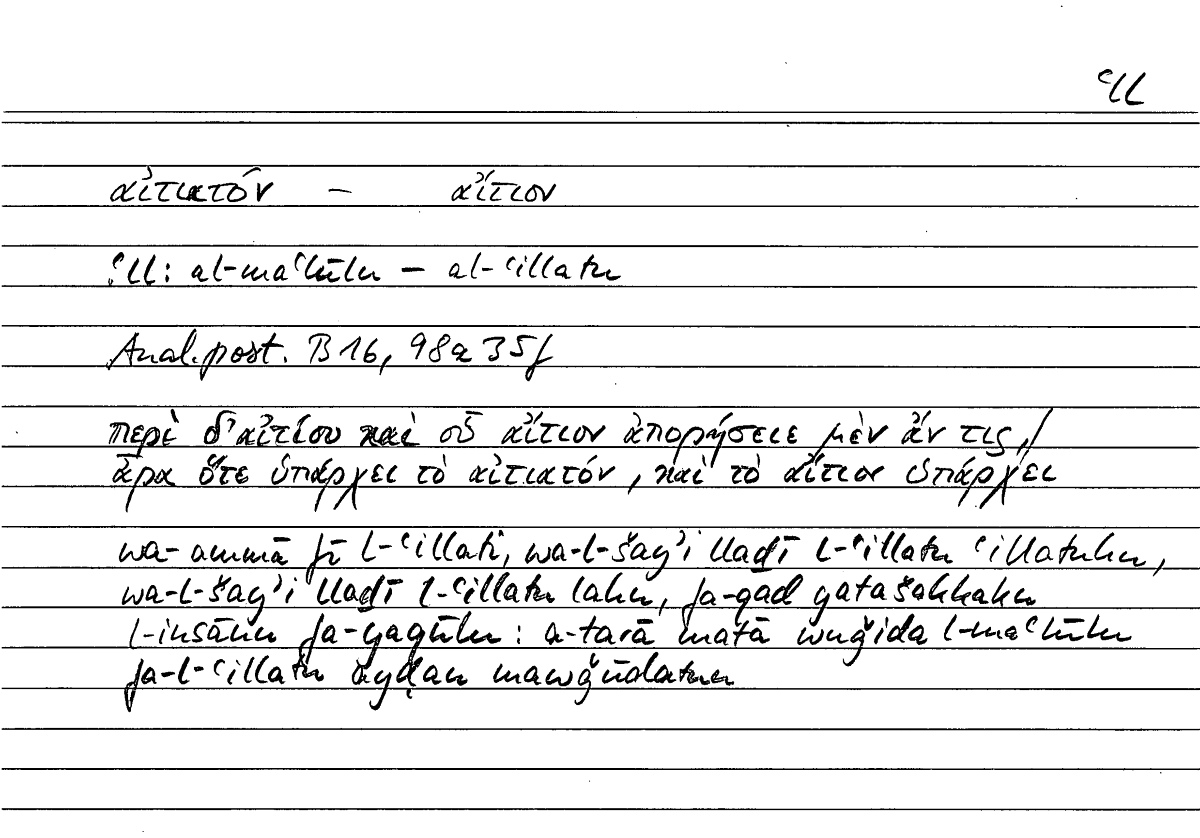 ʿll
αἰτιατόν – αἴτιον
ʿll: al-maʿlūlu – al-ʿillatu
Anal.post. B 16, 98a 35f
περὶ δ'αἰτίου καὶ οὗ αἴτιον ἀπορήσειε μὲν ἄν τις,/
ἆρα ὅτε ὑπάρχει τὸ αἰτιατόν, καὶ τὸ αἴτιον ὑπάρχει
wa-ammā fī l-ʿillati, wa-l-šayʾi lladī l-ʿillatu ʿillatuhu,
wa-l-šayʾi lladī l-ʿillatu lahu, fa-qad yatašakkaku
l-insānu fa-yaqūlu: a-tarā matā wuǧida l-maʿlūlu
fa-l-ʿillatu ayḍan mawǧūdatun